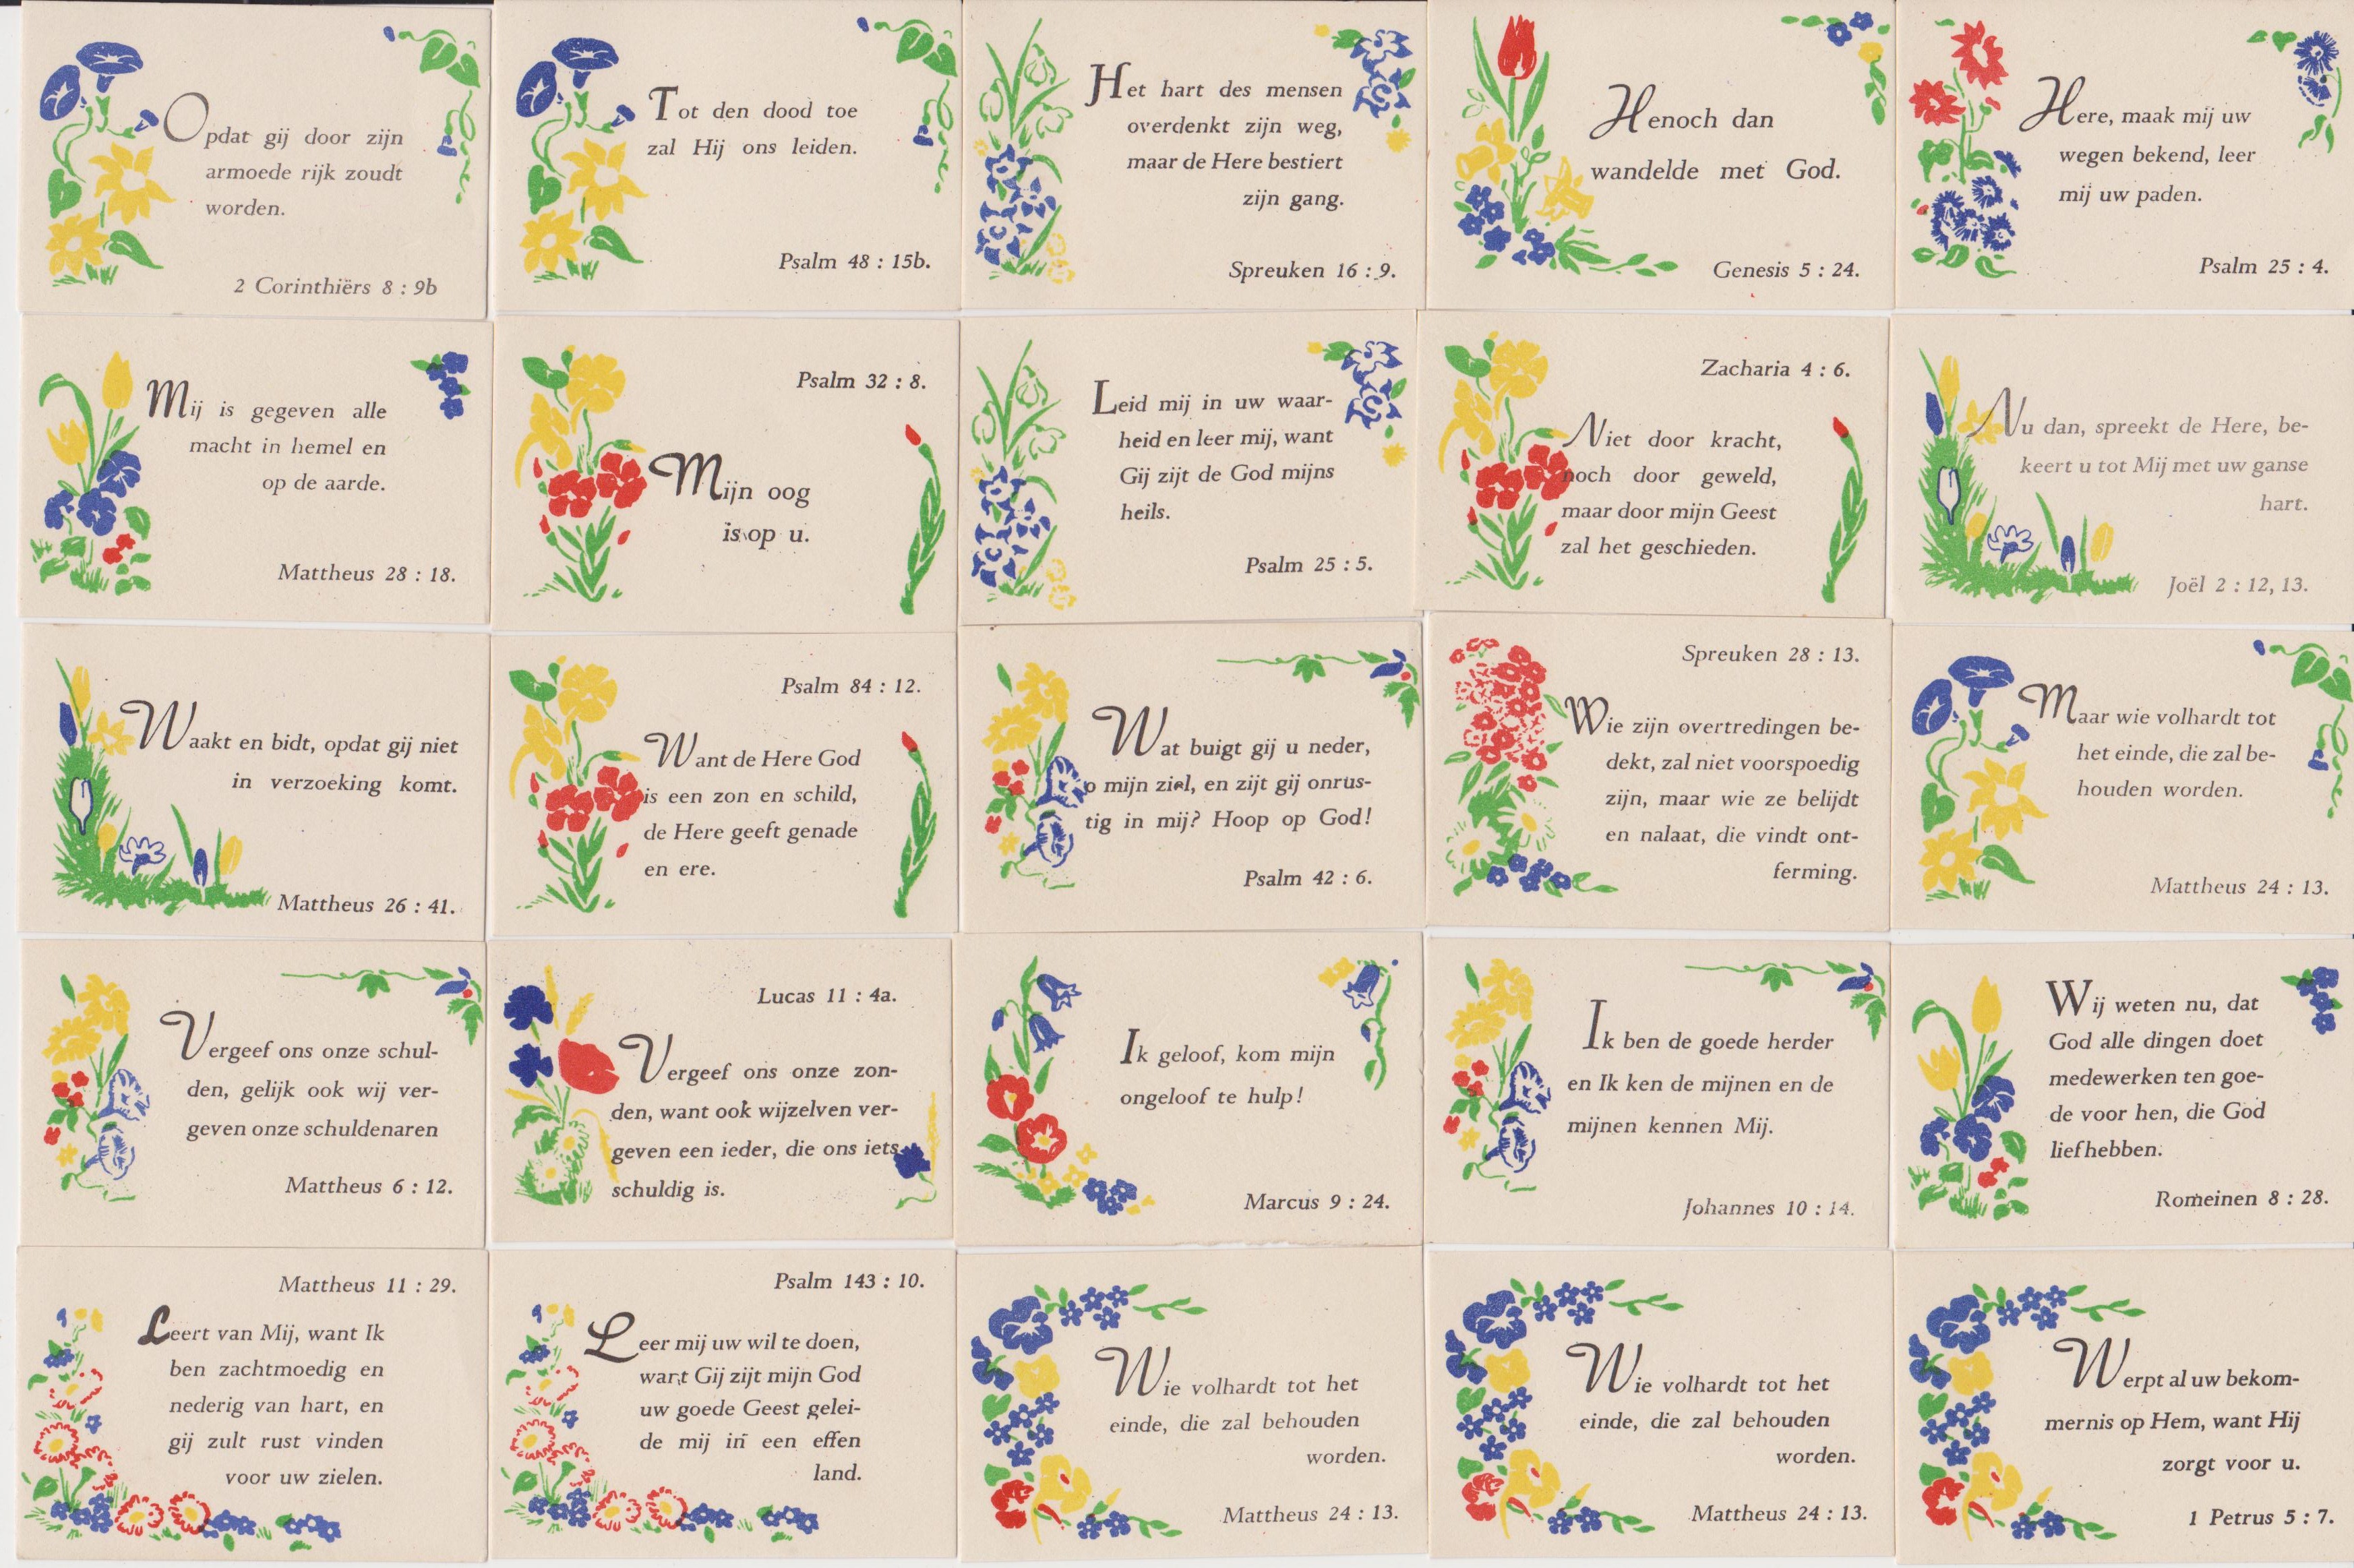 Opdat gij door zijn
armoede rijk zoudt
worden.
2 Corinthiërs 8 : 9b
Tot den dood toe
zal Hij ons leiden.
Psalm 48 : 15b.
Het hart des mensen
overdenkt zijn weg,
maar de Here bestiert
zijn gang.
Spreuken 16 : 9.
Henoch dan
wandelde met God.
Genesis 5 : 24.
Here, maak mij uw
wegen bekend, leer
mij uw paden.
Psalm 25 : 4.
Mij is gegeven alle
macht in hemel en
op de aarde.
Mattheus 28 : 18.
Psalm 32 : 8.
Mijn oog
is op u.
Leid mij in uw waar-
heid en leer mij, want
Gij zijt de God mijns
heils.
Psalm 25 : 5.
Zacharia 4 : 6.
Niet door kracht,
noch door geweld,
maar door mijn Geest
zal het geschieden.
Nu dan, spreekt de Here, be-
keert u tot Mij met uw ganse
hart.
Joël 2 : 12, 13.
Waakt en bidt, opdat gij niet
in verzoeking komt.
Mattheus 26 : 41.
Psalm 84 : 12.
Want de Here God
is een zon en schild,
de Here geeft genade
en ere.
Wat buigt gij u neder,
o mijn ziel, en zijt gij onrus-
tig in mij? Hoop op God!
Psalm 42 : 6.
Spreuken 28 : 13.
Wie zijn overtredingen be-
dekt, zal niet voorspoedig
zijn, maar wie ze belijdt
en nalaat, die vindt ont-
ferming.
Maar wie volhardt tot
het einde, die zal be-
houden worden.
Mattheus 24 : 13.
Vergeef ons onze schul-
den, gelijk ook wij ver-
geven onze schuldenaren
Mattheus 6 : 12.
Lucas 11 : 4a.
Vergeef ons onze zon-
den, want ook wijzelven ver-
geven een ieder, die ons iets
schuldig is.
Ik geloof, kom mijn
ongeloof te hulp!
Marcus 9 : 24.
Ik ben de goede herder
en Ik ken de mijnen en de
mijnen kennen Mij.
Johannes 10 : 14.
Wij weten nu, dat
God alle dingen doet
medewerken ten goe-
de voor hen, die God
liefhebben.
Romeinen 8 : 28.
Mattheus 11 : 29.
Leert van Mij, want Ik
ben zachtmoedig en
nederig van hart, en
gij zult rust vinden
voor uw zielen.
Psalm 143 : 10.
Leer mij uw wil te doen,
want Gij zijt mijn God
uw goede Geest gelei-
de mij in een effen
land.
Wie volhardt tot het
einde, die zal behouden
worden.
Mattheus 24 : 13.
Wie volhardt tot het
einde, die zal behouden
worden.
Mattheus 24 : 13.
Werpt al uw bekom-
mernis op Hem, want Hij
zorgt voor u.
1 Petrus 5 : 7.